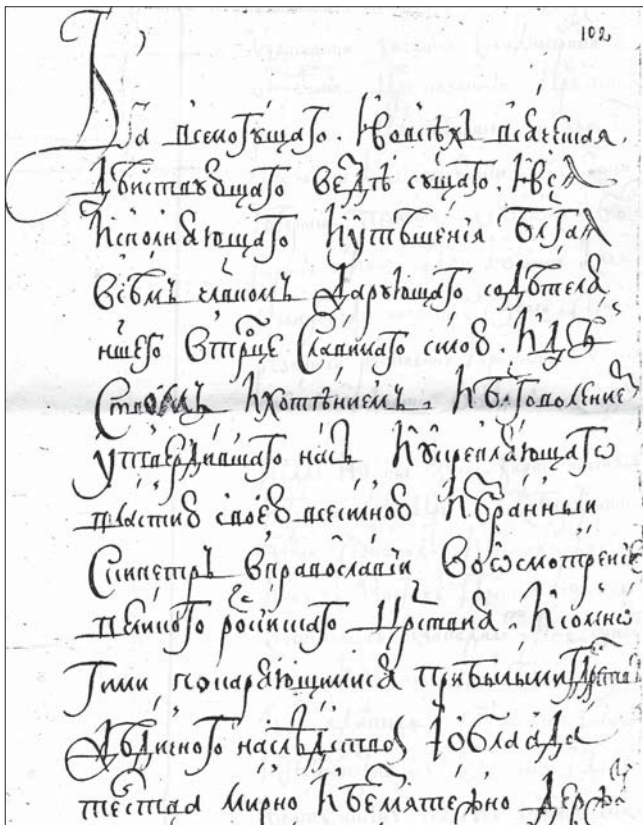 102
Бга всемогущаго. и во всѣхъ всяческая
дѣйствующаго вездѣ сущаго. и вся
исполняющаго и утѣшения блгая
всѣмъ члвкомъ дарующаго содѣтеля
ншего в трце славимаго силою. и дѣ
ством и хотѣниемъ. и блговолением
утвердившаго насъ и укрепляющаго
властию своею всесилною избранный
скипетръ в православии во осмотрение
великого росийскаго црствия. и со мно
гими покаряющимися прибылыми гдрства
дѣдичного наслѣдство и облаада
телства мирно и безмятежно держа